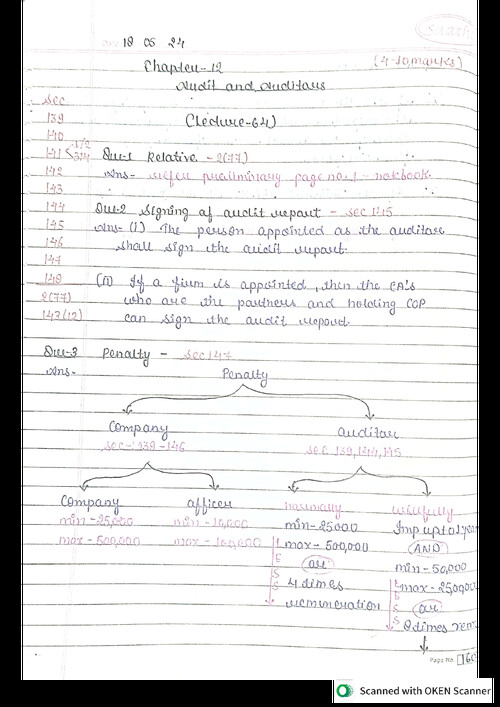 18 05 24
Saathi
Chapter-12
(4-10 marks)
Audit and Auditors
Sec
(Lecture-64)
139
140
141 < 1/2 3/4
Que-1 Relative - 2(77)
142
Ans- refer preliminary page no.-1 - notebook
143
144
Que-2 Signing of audit report - Sec 145
145
Ans- (i) The person appointed as the auditor
146
shall sign the audit report.
147
148
(ii) If a firm is appointed, then the CA's
2(77)
who are the partners and holding COP
143(12)
can sign the audit report.
Que-3 Penalty - Sec 147
Ans-
Penalty
Company
Auditor
Sec-139-146
Sec 139, 144, 145
Company officer normally willfully
min - 25,000 min - 10,000 min - 25000 Imp upto 1 year
max - 500,000 max - 100,000 max - 500,000 AND
or min - 50,000
4 times max - 25,00,000
remuneration or
8 times rem
Page No. 160
Scanned with OKEN Scanner